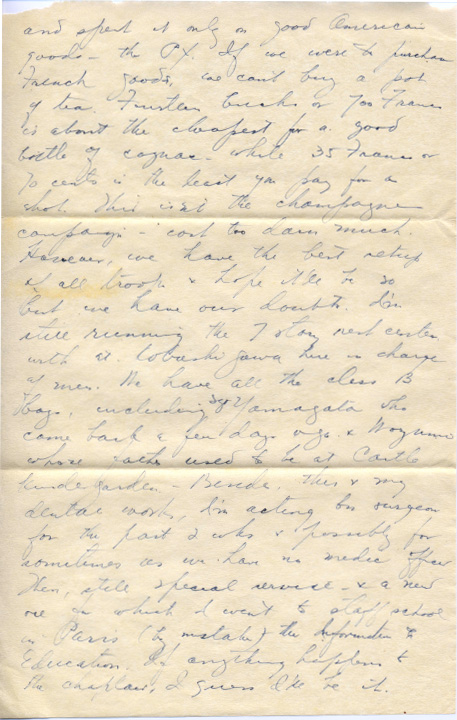 and spent it only on good American
goods - the PX. If we were to purchase
French goods, we can't buy a pot
of tea. Fourteen bucks or 700 Francs
is about the cheapest for a good
bottle of cognac - while 35 Francs or
70 cents is the least you pay for a
shot. This isn't the champagne
campaign - cost too darn much.
However, we have the best setup
of all troops & hope it'll be so
but we have our doubts. I'm
still running the 7 story rest center
with Lt. Kobashigawa here in charge
of men. We have all the class B
boys, including Sgt Yamagata who
came back a few days ago &
whose father used to be at Castle
Kindergarden - Beside, this & my
dental work, I'm acting bn surgeon
for the past 2 wks & possibly for
sometime as we have no medic officer
Then, still special service - & a new
one in which I went to staff school
in Paris (by mistake) the Information &
Education. If anything happens to
the chaplain, I guess I'll be it.